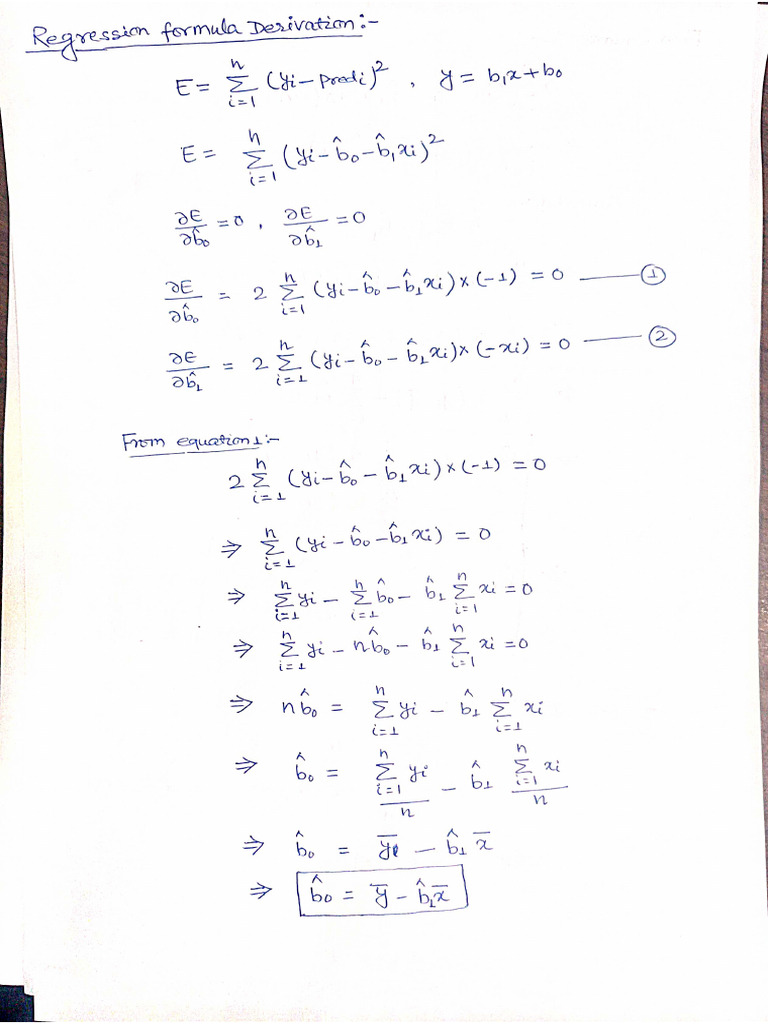 Regression formula Derivation:-
E = n∑i=1 (yi - predi)², y = b₁x + b₀
E = n∑i=1 (yi - b̂₀ - b̂₁xi)²
∂E/∂b̂₀ = 0, ∂E/∂b̂₁ = 0
∂E/∂b̂₀ = 2 n∑i=1 (yi - b̂₀ - b̂₁xi) × (-1) = 0 —— ①
∂E/∂b̂₁ = 2 n∑i=1 (yi - b̂₀ - b̂₁xi) × (-xi) = 0 —— ②
From equation 1:-
2 n∑i=1 (yi - b̂₀ - b̂₁xi) × (-1) = 0
⇒ n∑i=1 (yi - b̂₀ - b̂₁xi) = 0
⇒ n∑i=1 yi - n∑i=1 b̂₀ - b̂₁ n∑i=1 xi = 0
⇒ n∑i=1 yi - nb̂₀ - b̂₁ n∑i=1 xi = 0
⇒ nb̂₀ = n∑i=1 yi - b̂₁ n∑i=1 xi
⇒ b̂₀ = n∑i=1 yi / n - b̂₁ n∑i=1 xi / n
⇒ b̂₀ = ȳ - b̂₁ x̄
⇒ b̂₀ = ȳ - b̂₁x̄